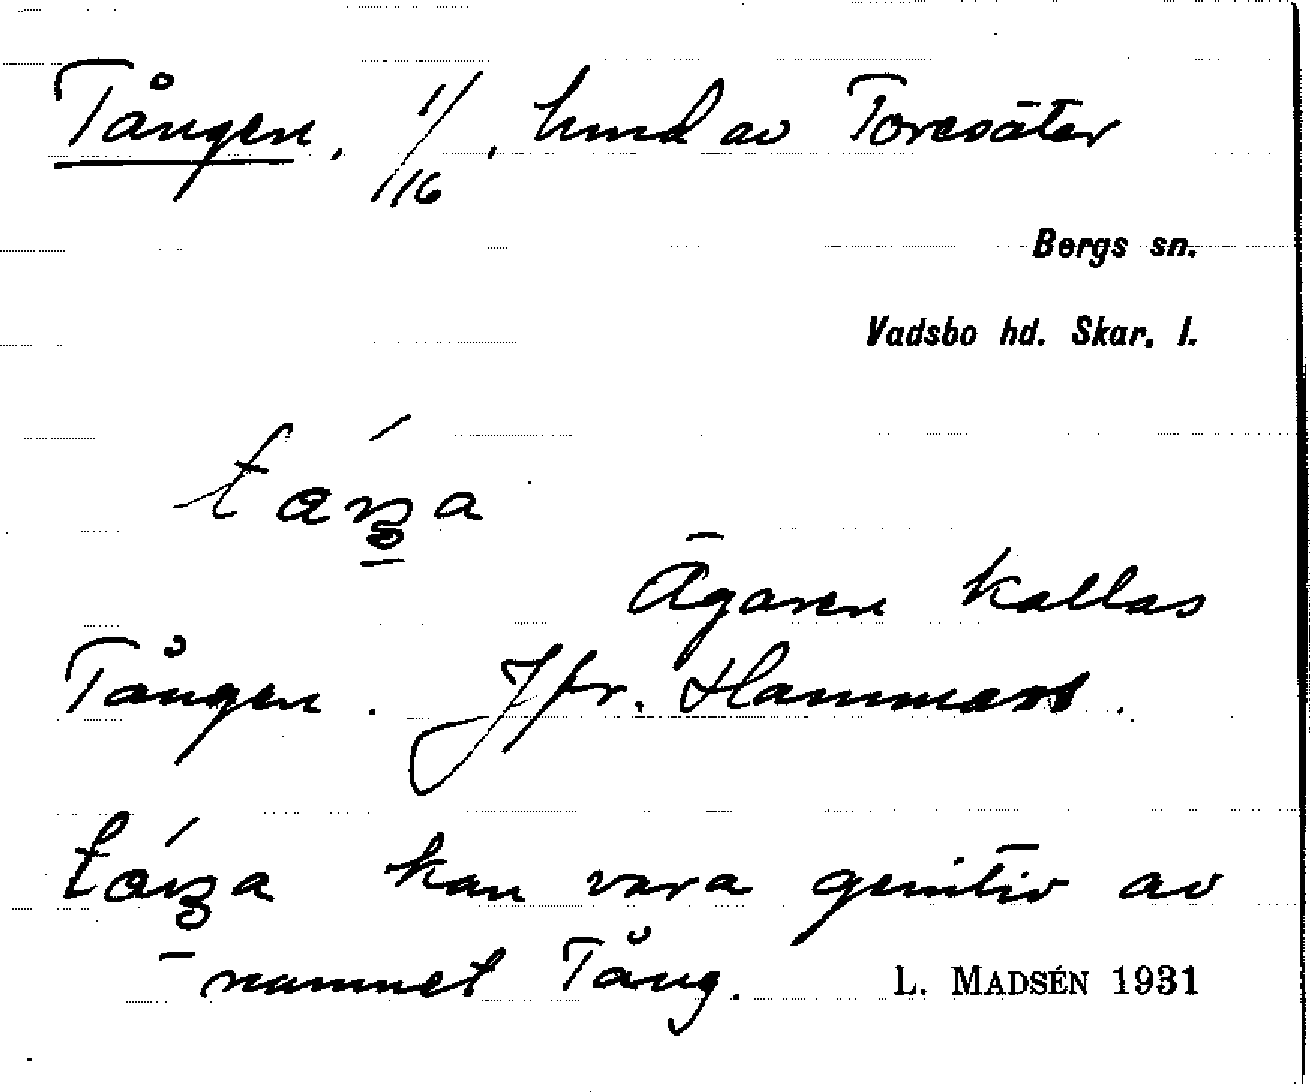 Tången, 1/16, hmd av Toresäter
Bergs sn.
Vadsbo hd. Skar. l.
Ägaren kallas
Tången. Jfr. Hammars.
kan vara genitiv av
namnet Tång. L. MADSÉN 1931